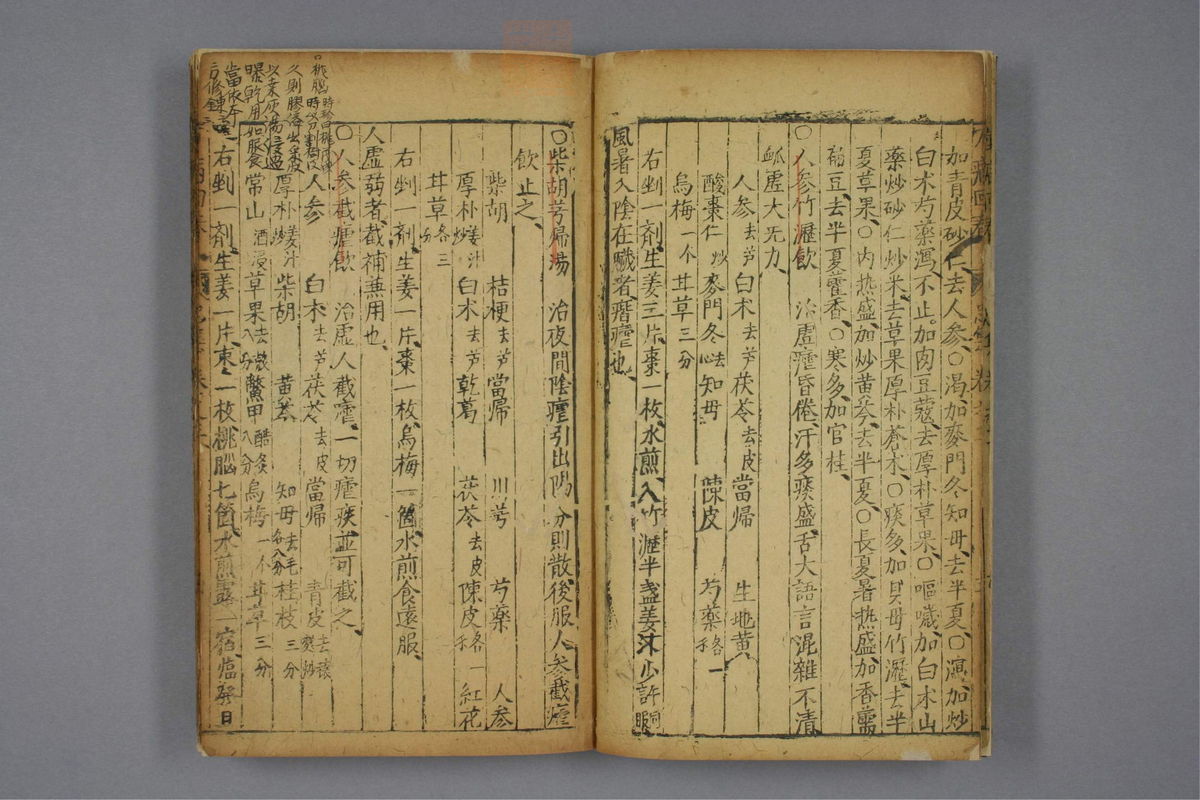 加青皮砂仁去人參○渴加麥門冬知母去半夏○瀉加炒
白朮芍藥瀉不止加肉豆蔲去厚朴草果○嘔噦加白朮山
藥炒砂仁炒米去草果厚朴蒼朮○痰多加貝母竹瀝去半
夏草果○内热盛加炒黄芩去半夏○長夏暑热盛加香薷
藊豆去半夏藿香○寒多加官桂
○人參竹瀝飲 治虚瘧昏倦汗多痰盛舌大語言混雜不清
虚大无力
人參去芦 白朮去芦 茯苓去皮 當帰 生地黄
酸棗仁炒 麥門冬去心 知母 陳皮 芍藥各一
烏梅一个 甘草三分
右剉一剤生姜三片棗一枚水煎入竹瀝半盞姜汁少許同服
風暑入陰在臓者瘧也
○柴胡芎帰湯 治夜間陰瘧引出陽分則散後服人參截瘧
飲止之
柴胡 桔梗去芦 當帰 川芎 芍藥 人參
厚朴姜汁炒 白朮去芦 乾葛 茯苓去皮 陳皮各一 紅花
甘草各三分
右剉一剤生姜一片棗一枚烏梅一箇水煎食遠服
人虚弱者截補兼用也
○人參截瘧飲 治虚人截瘧一切瘧疾並可截之
人參 白朮去芦 茯苓去皮 當帰 青皮去穰麩炒
厚朴姜汁炒 柴胡 黄芩 知母去毛各八分 桂枝三分
常山酒浸 草果去殼八分 鱉甲醋炙八分 烏梅一个 甘草三分
右剉一剤生姜一片棗一枚桃腦七箇水煎露一宿臨發日